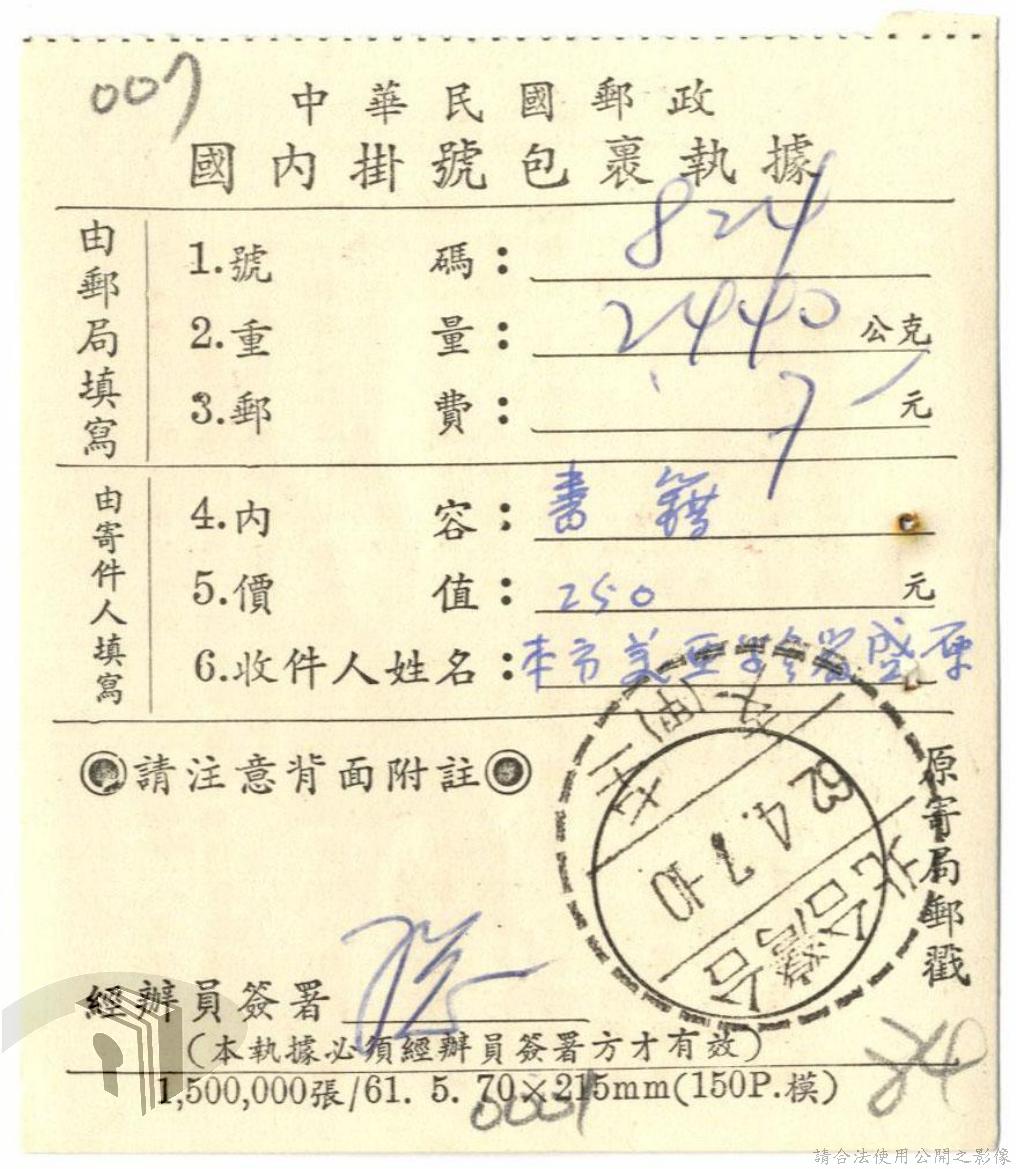 007
中華民國郵政
國內掛號包裹執據
由郵局填寫
1.號碼： 824
2.重量： 2440 公克
3.郵費： 7 元
由寄件人填寫
4.內容： 書籍
5.價值： 250 元
6.收件人姓名： 本市美亞
◉請注意背面附註◉
原寄局郵戳
62
4. 7 10
台灣
台北
經辦員簽署
（本執據必須經辦員簽署方才有效）
1,500,000張/61. 5. 70×215mm(150P.模)
0001
84
請合法使用公開之影像